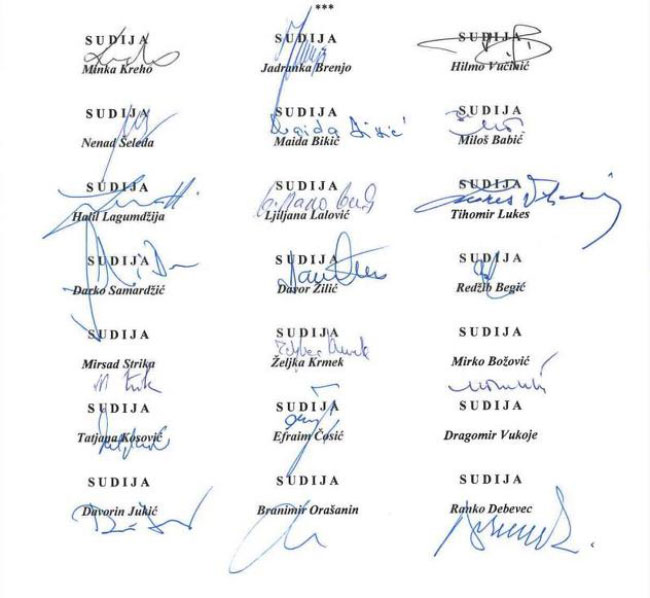 ***
SUDIJA SUDIJA SUDIJA
Minka Kreho Jadranka Brenjo Hilmo Vučinić
SUDIJA SUDIJA SUDIJA
Nenad Šeleda Maida Bikić Miloš Babić
SUDIJA SUDIJA SUDIJA
Halil Lagumdžija Ljiljana Lalović Tihomir Lukes
SUDIJA SUDIJA SUDIJA
Darko Samardžić Davor Žilić Redžib Begić
SUDIJA SUDIJA SUDIJA
Mirsad Strika Željka Krmek Mirko Božović
SUDIJA SUDIJA SUDIJA
Tatjana Kosović Efraim Ćosić Dragomir Vukoje
SUDIJA SUDIJA SUDIJA
Davorin Jukić Branimir Orašanin Ranko Debevec